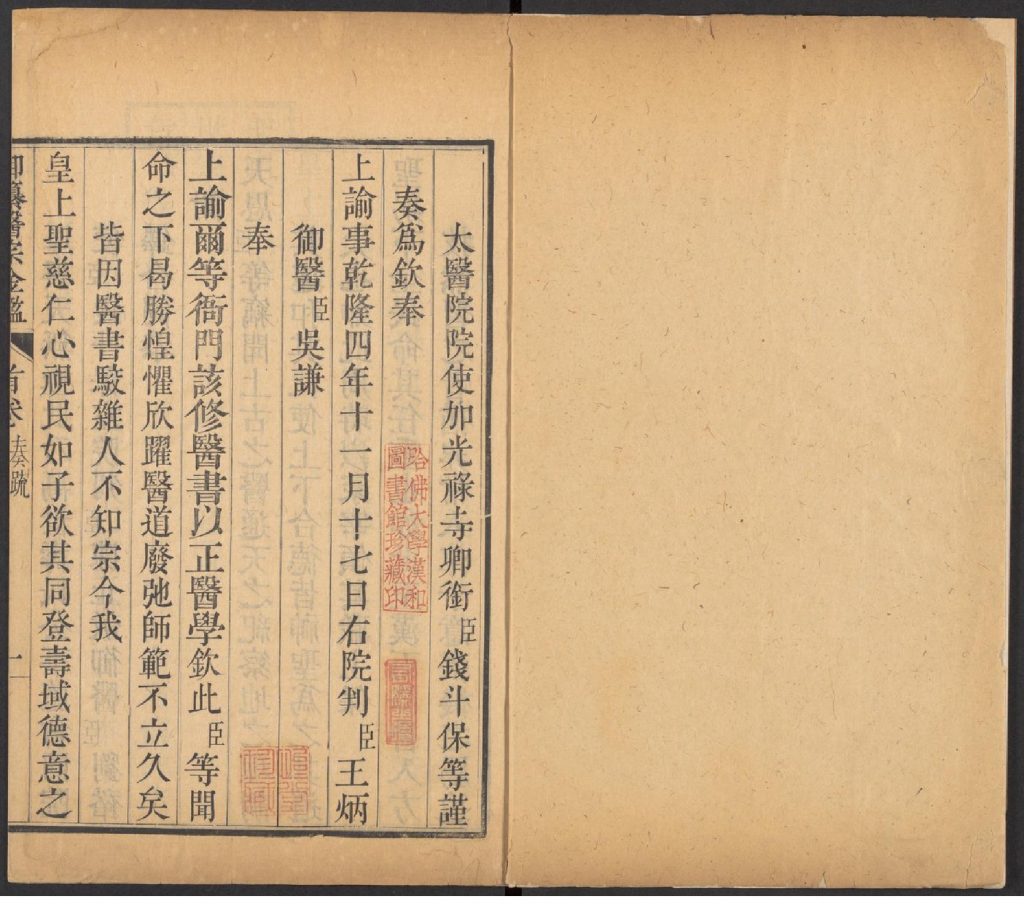 太醫院院使加光祿寺卿銜臣錢斗保等謹
奏爲欽奉
上諭事乾隆四年十一月十七日右院判臣王炳
御醫臣吳謙
奉
上諭爾等衙門該修醫書以正醫學欽此臣等聞
命之下曷勝惶懼欣躍醫道廢弛師範不立久矣
皆因醫書駁雜人不知宗今我
皇上聖慈仁心視民如子欲其同登壽域德意之
御纂醫宗金鑑 首卷 奏疏 一
哈佛大學漢和
圖書館珍藏印